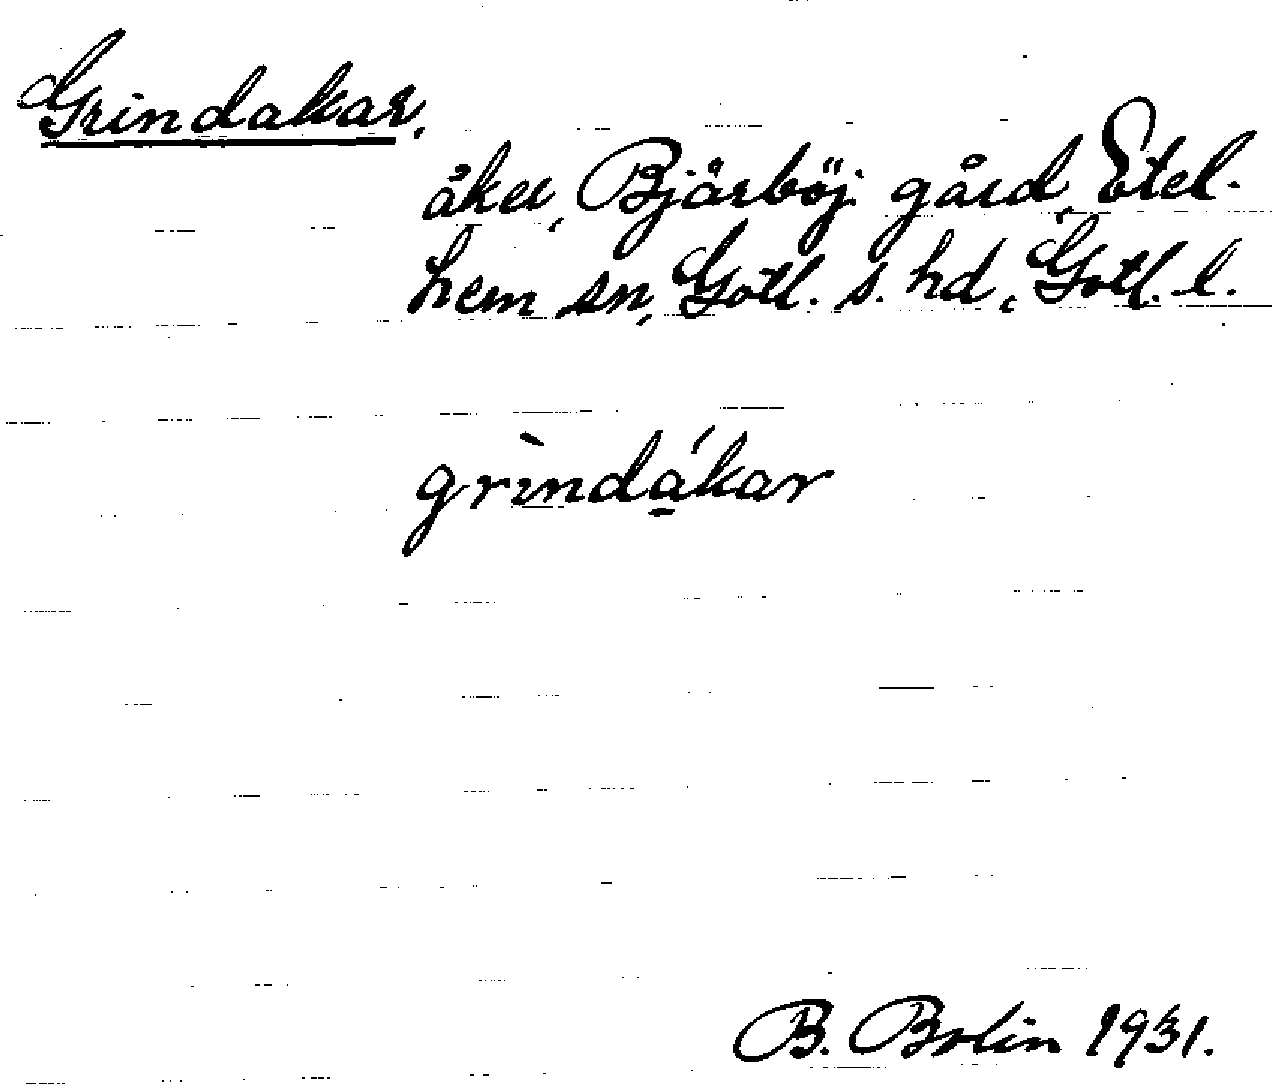 Grindakar,
åker, Bjärböj. gård, Etel-
hem sn, Gotl. s. hd, Gotl. l.
grìndá̱kar
B. Bolin 1931.